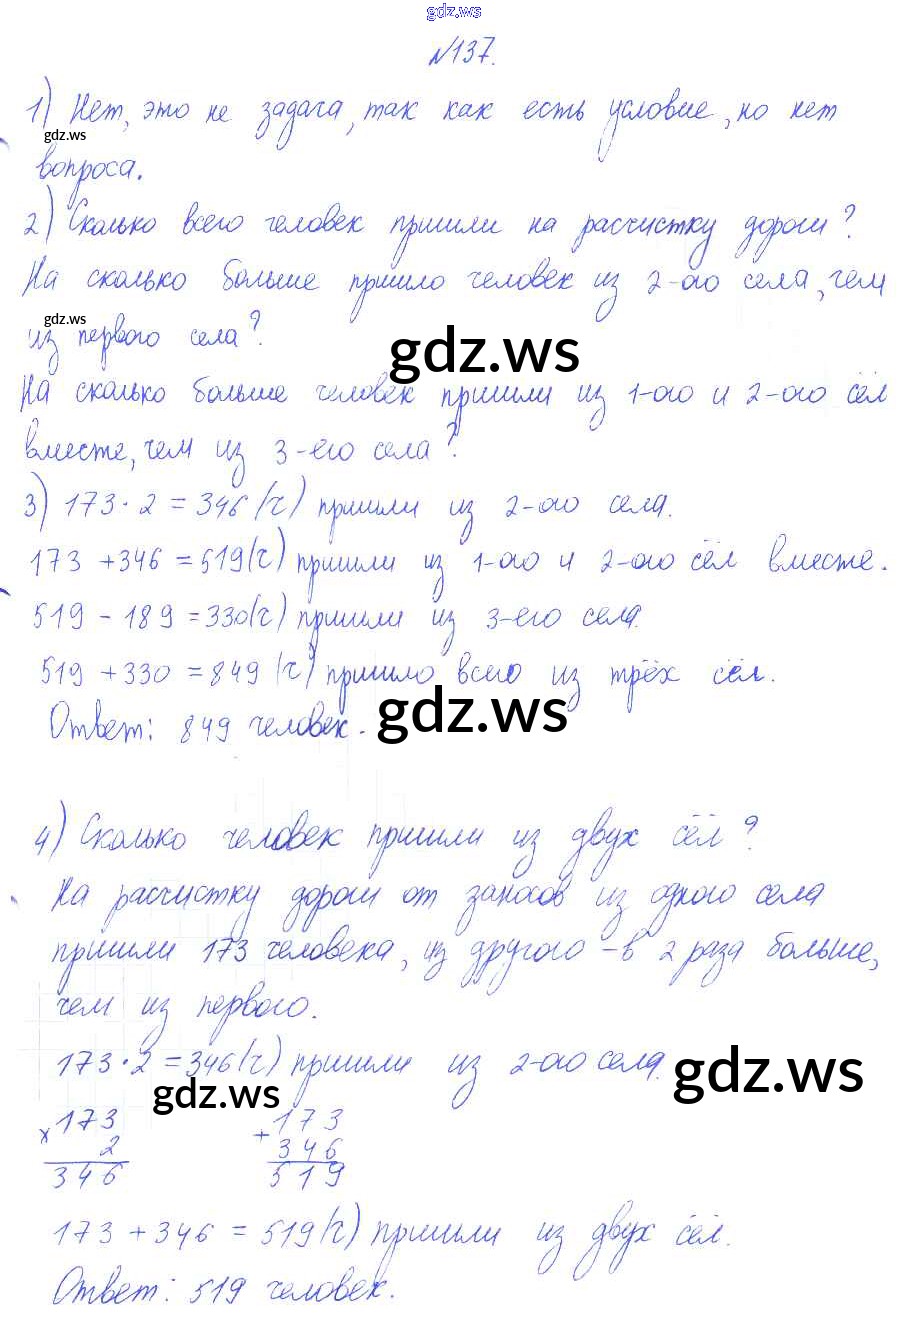 gdz.ws
№137.
1) Нет, это не задача, так как есть условие, но нет
gdz.ws
вопроса.
2) Сколько всего человек пришли на расчистку дороги?
На сколько больше пришло человек из 2-ого села, чем
gdz.ws
из первого села?
gdz.ws
На сколько больше человек пришли из 1-ого и 2-ого сёл
вместе, чем из 3-его села?
3) 173 · 2 = 346 (ч) пришли из 2-ого села.
173 + 346 = 519 (ч) пришли из 1-ого и 2-ого сёл вместе.
519 - 189 = 330 (ч) пришли из 3-его села.
519 + 330 = 849 (ч) пришло всего из трёх сёл.
Ответ: 849 человек.
gdz.ws
4) Сколько человек пришли из двух сёл?
На расчистку дороги от заносов из одного села
пришли 173 человека, из другого - в 2 раза больше,
чем из первого.
173 · 2 = 346 (ч) пришли из 2-ого села.
gdz.ws
gdz.ws
× 173 + 173
2 346
346 519
173 + 346 = 519 (ч) пришли из двух сёл.
Ответ: 519 человек.